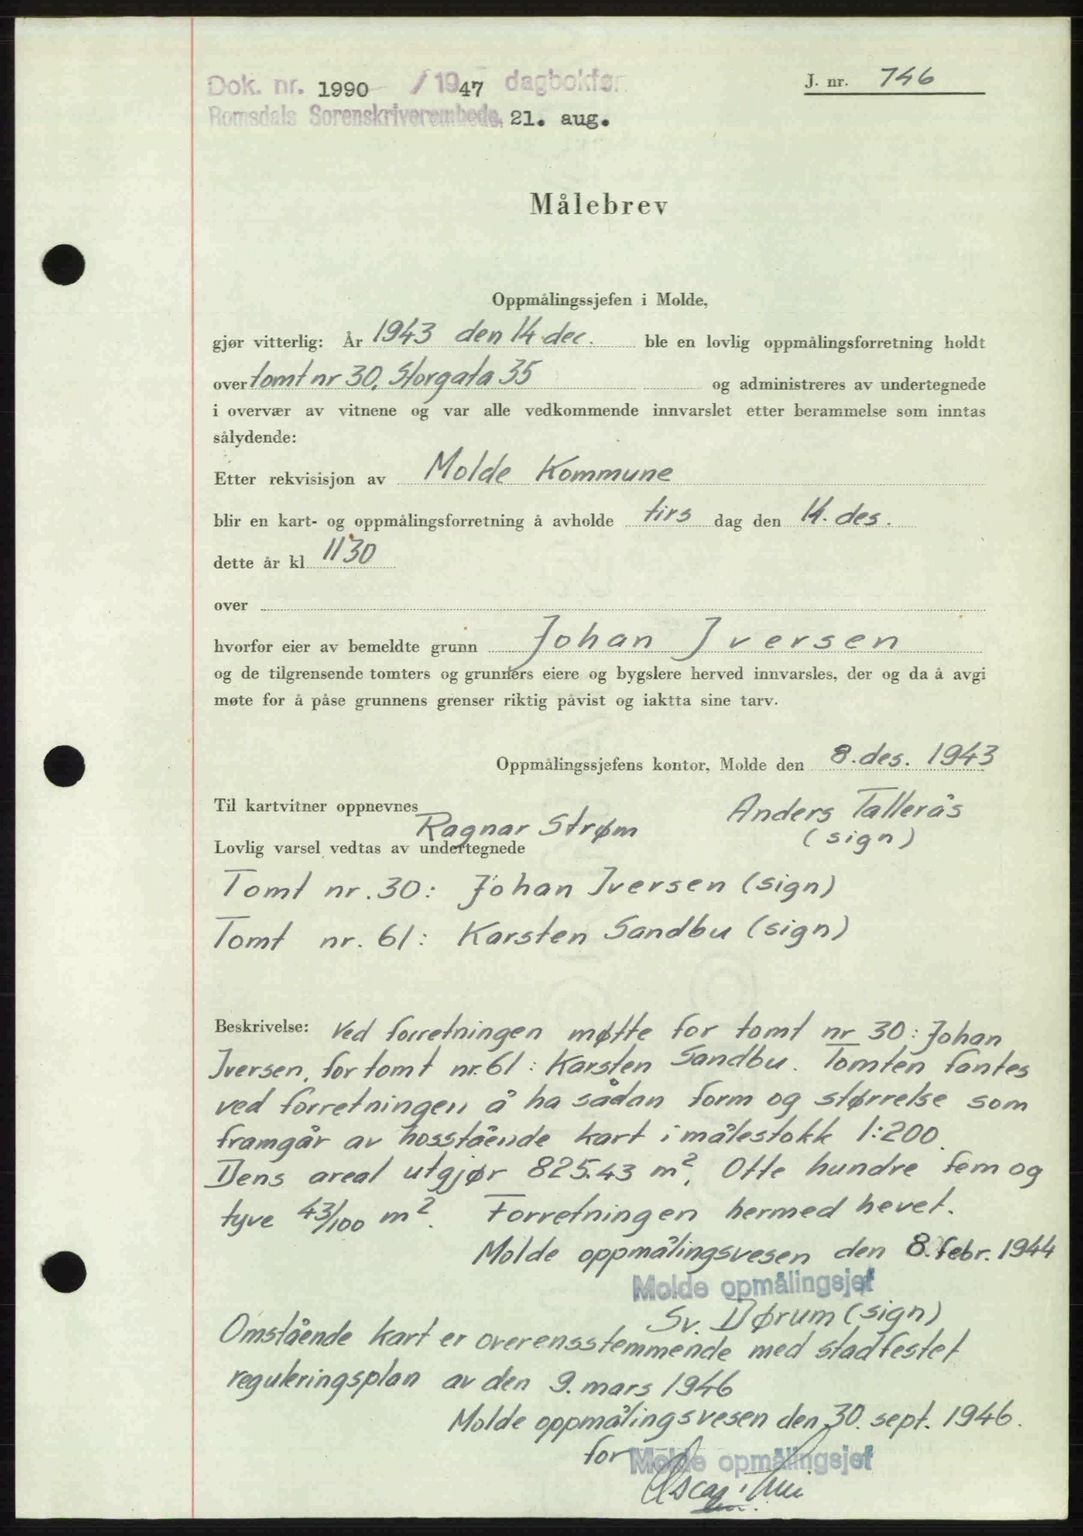 Dok. nr. 1990 / 1947 dagbokfør.
J. nr. 746
Romsdals Sorenskriverembede, 21. aug.
Målebrev
Oppmålingssjefen i Molde,
gjør vitterlig: År 1943 den 14 dec. ble en lovlig oppmålingsforretning holdt
over tomt nr 30, Storgata 35 og administreres av undertegnede
i overvær av vitnene og var alle vedkommende innvarslet etter berammelse som inntas
sålydende:
Etter rekvisisjon av Molde Kommune
blir en kart- og oppmålingsforretning å avholde tirs dag den 14. des.
dette år kl 1130
over
hvorfor eier av bemeldte grunn Johan Iversen
og de tilgrensende tomters og grunners eiere og bygslere herved innvarsles, der og da å avgi
møte for å påse grunnens grenser riktig påvist og iaktta sine tarv.
Oppmålingssjefens kontor, Molde den 8. des. 1943
Til kartvitner oppnevnes Ragnar Strøm
Anders Tallerås
(sign)
Lovlig varsel vedtas av undertegnede
Tomt nr. 30: Johan Iversen (sign)
Tomt nr. 61: Karsten Sandbu (sign)
Beskrivelse: Ved forretningen møtte for tomt nr 30: Johan
Iversen, for tomt nr. 61: Karsten Sandbu. Tomten fantes
ved forretningen å ha sådan form og størrelse som
framgår av hosstående kart i målestokk 1:200.
Dens areal utgjør 825.43 m². Otte hundre fem og
tyve 43/100 m². Forretningen hermed hevet.
Molde oppmålingsvesen den 8. febr. 1944
Molde opmålingsjef
Sv. Dørum (sign)
Omstående kart er overensstemmende med stadfestet
reguleringsplan av den 9. mars 1946
Molde oppmålingsvesen den 30. sept. 1946.
for Molde opmålingsjef
Oscar